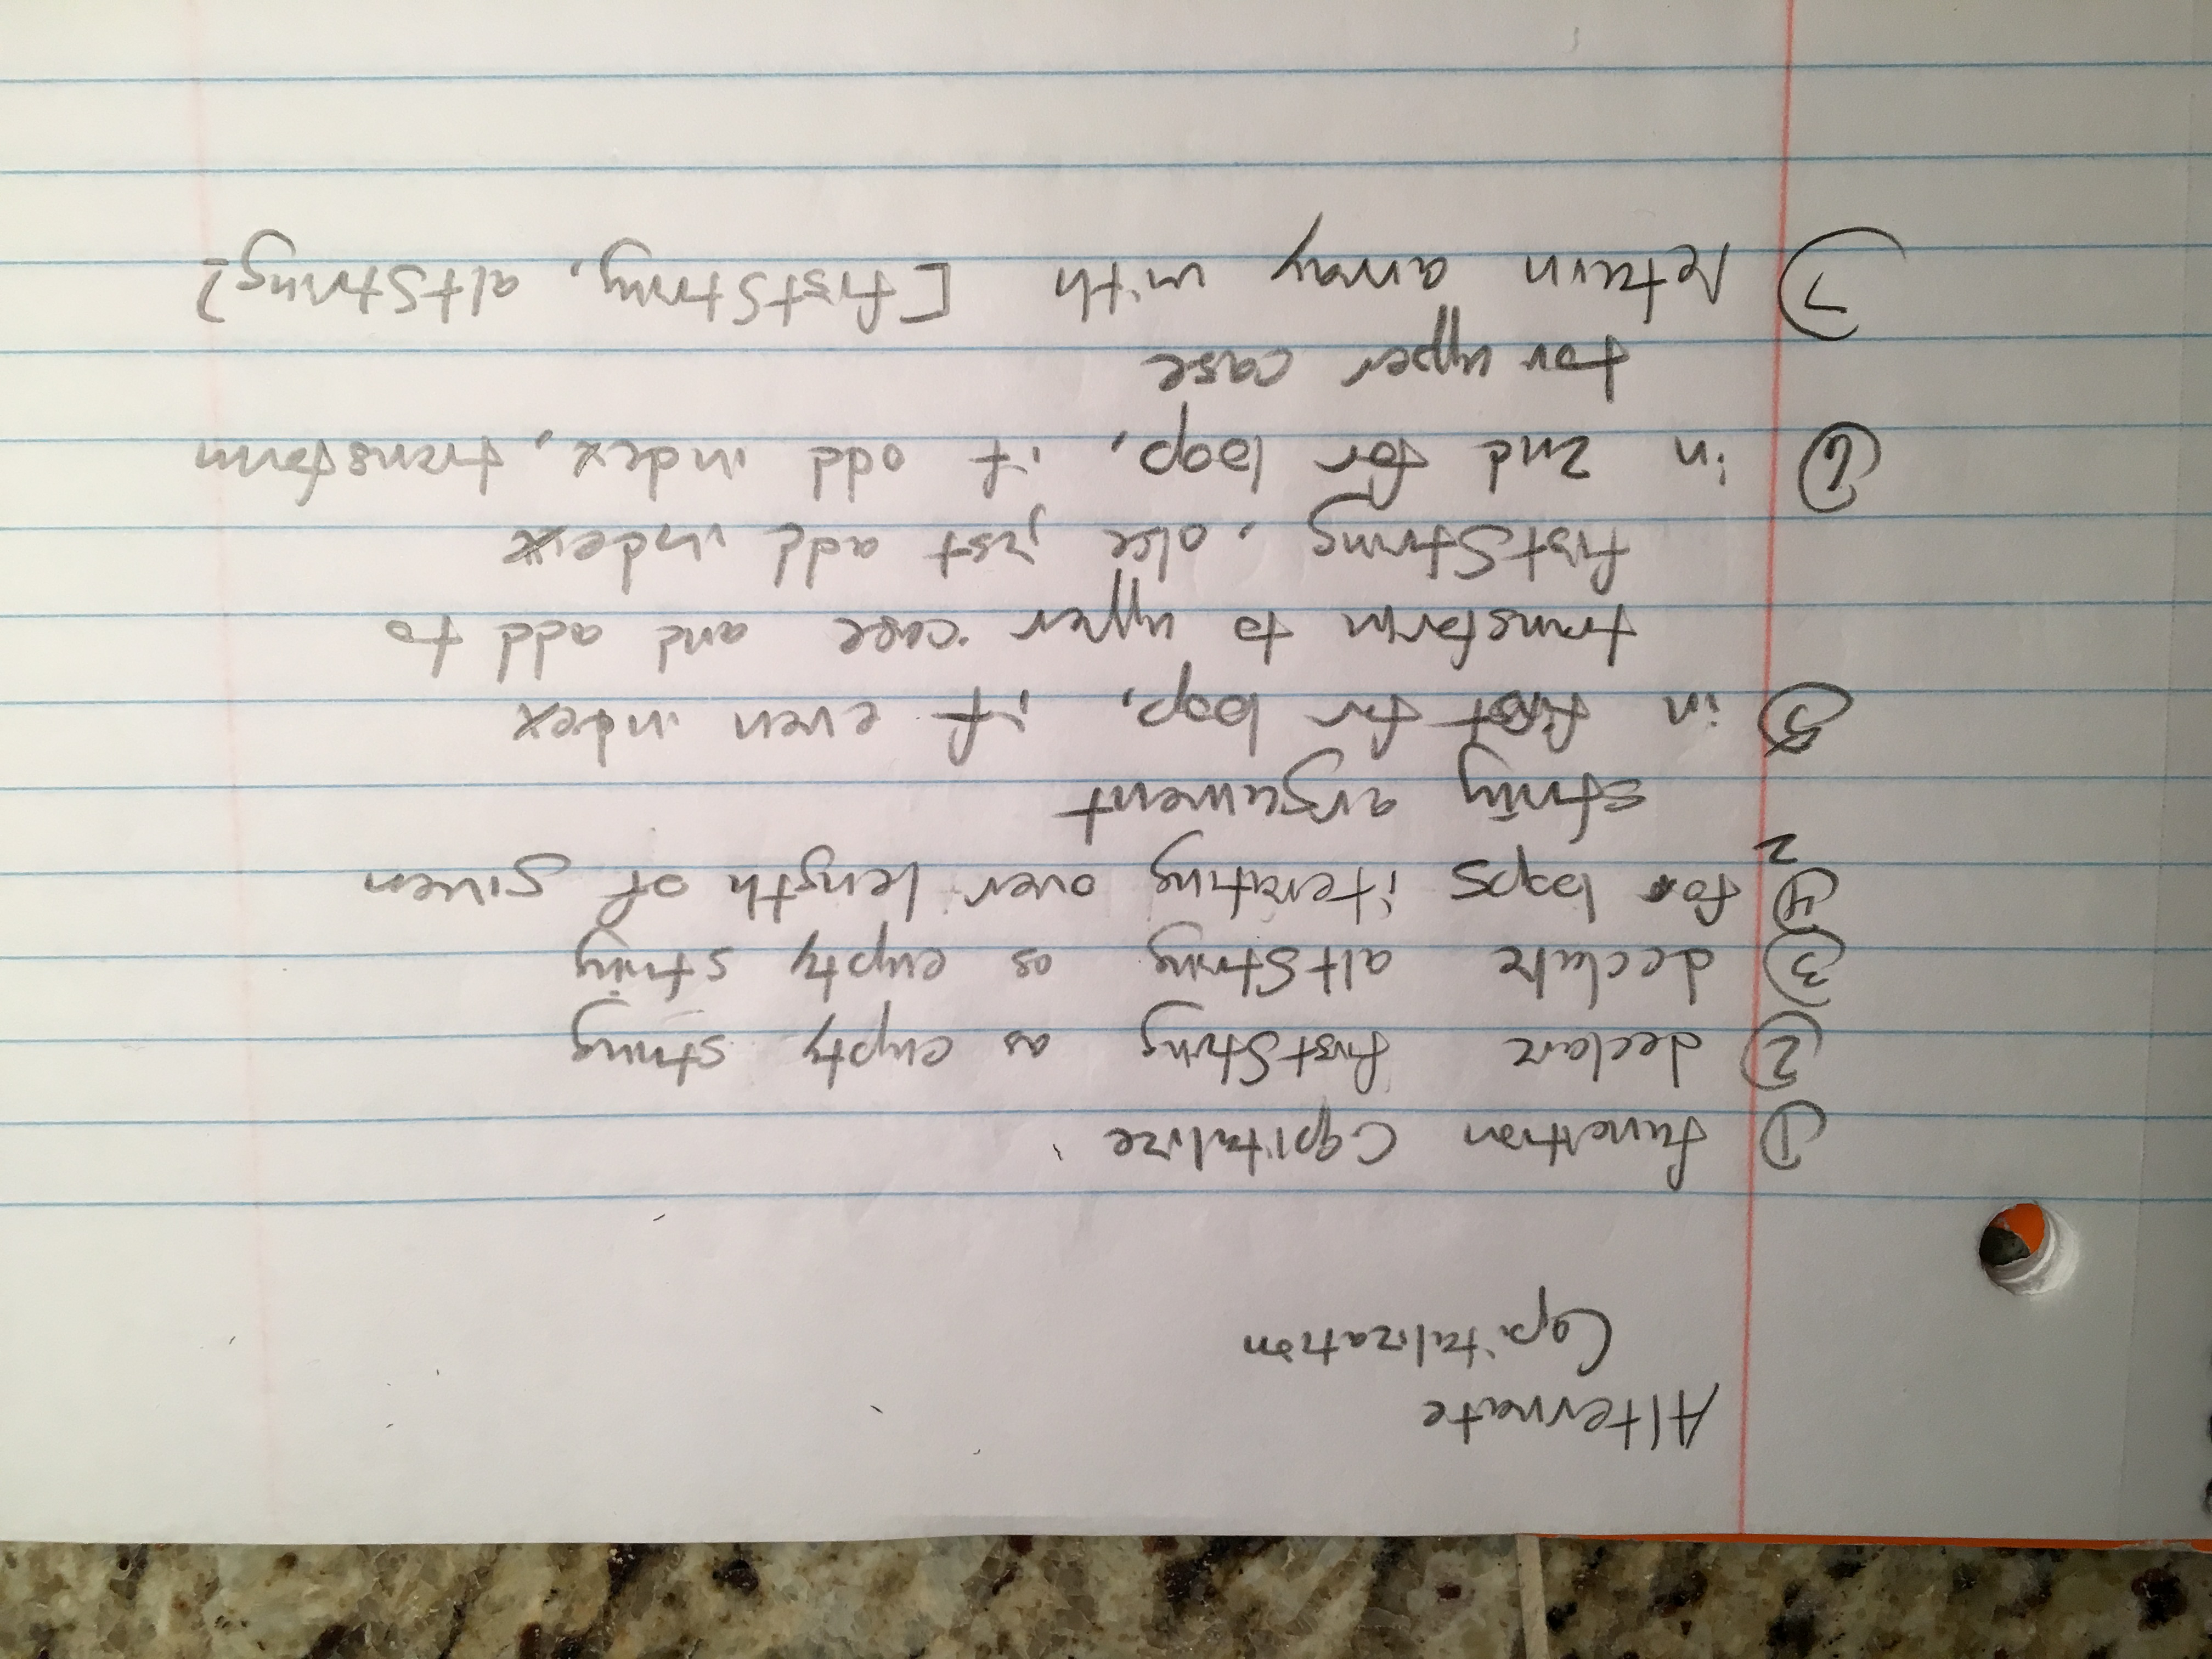 Alternate
Capitalization
① function capitalize
② declare firstString as empty string
③ declare altString as empty string
④ for loops iterating over length of given
2 string argument
⑤ in first for loop, if even index
transform to upper case and add to
firstString, else just add index
⑥ in 2nd for loop, if odd index, transform
to upper case
⑦ return array with [firstString, altString]